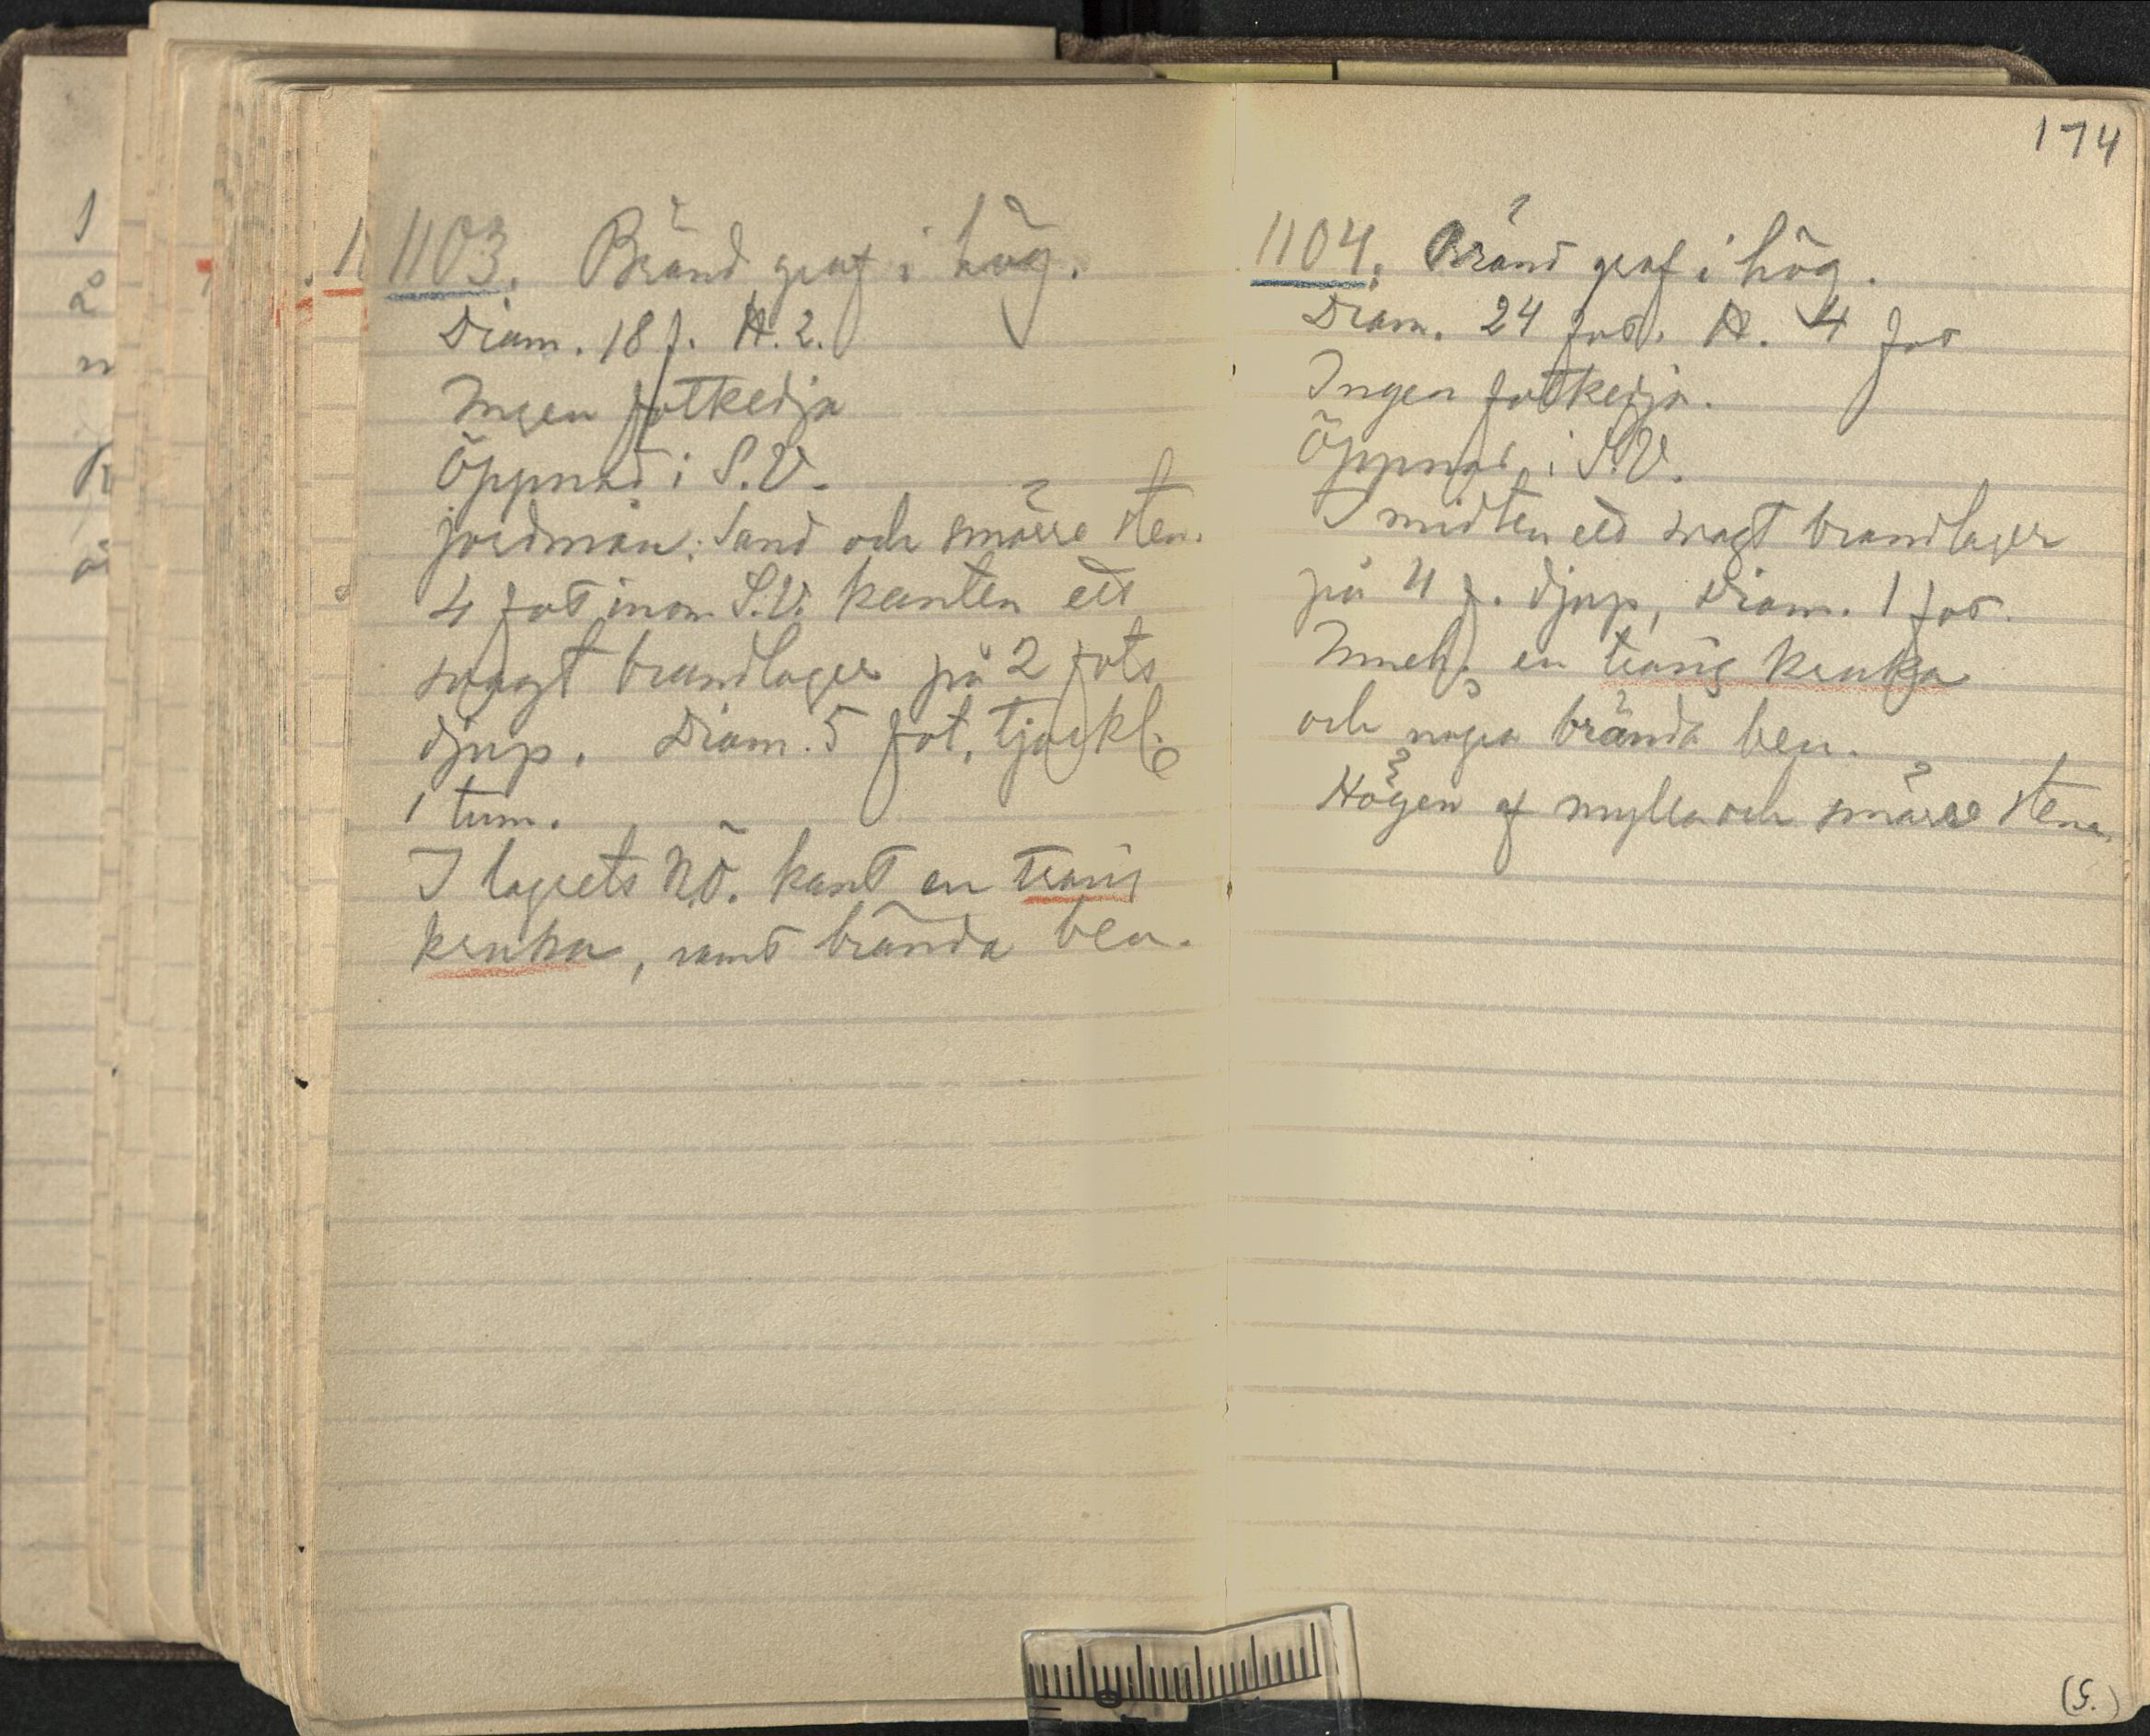 1103. Bränd graf i hög.
Diam. 18 f. H. 2.
Ingen fotkedja
Öppnad i S.V.
jordmån: Sand och smärre sten.
4 fot inom S.V. kanten ett
svagt brandlager på 2 fots
djup. Diam. 5 fot, tjockl.
1 tum.
I lagrets NÖ. kant en trasig
kruka, samt brända ben.
174
1104. Bränd graf i hög.
Diam. 24 fot. H. 4 fot
Ingen fotkedja.
Öppnad i S.V.
I midten ett svagt brandlager
på 4 f. djup, Diam. 1 fot.
Inneh. en trasig kruka
och några brända ben.
Högen af mylla och smärre stenar
(5.)